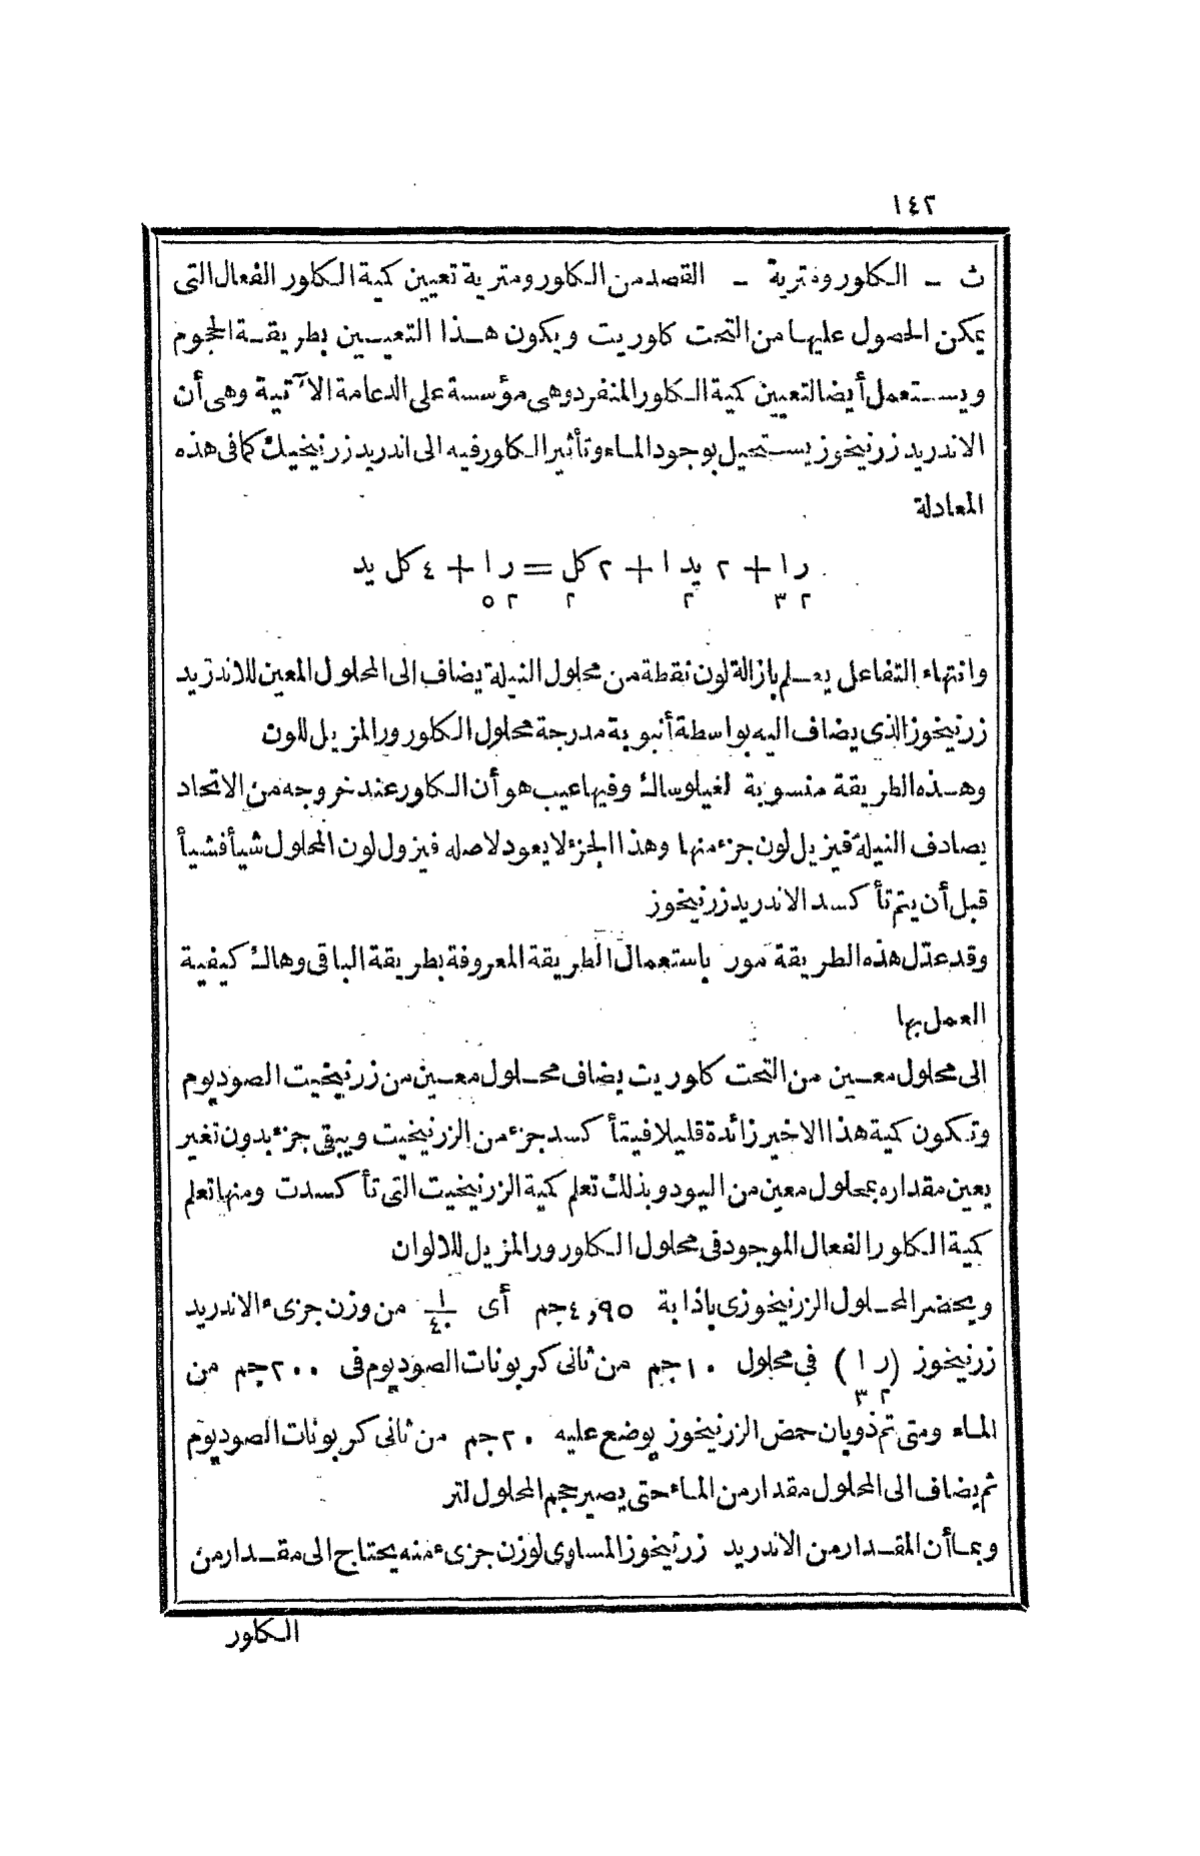 ١٤٢
ث - الكلورومترية - القصد من الكلورومترية تعيين كمية الكلور الفعال التى
يمكن الحصول عليها من التحت كلوريت ويكون هذا التعيين بطريقة الحجوم
ويستعمل أيضا لتعيين كمية الكلور المنفرد وهى مؤسسة على الدعامة الآتية وهى أن
الاندريد زرنيخوز يستحيل بوجود الماء وتأثير الكلور فيه الى اندريد زرنيخيك كما فى هذه
المعادلة
ر ا + ٢ يد ا + ٢ كل = ر ا + ٤ كل يد
٢ ٣ ٢ ٢ ٢ ٥
وانتهاء التفاعل يعلم بازالة لون نقطة من محلول النيلة يضاف الى المحلول المعين للاندريد
زرنيخوز الذى يضاف اليه بواسطة أنبوبة مدرجة محلول الكلورور المزيل للون
وهذه الطريقة منسوبة لغيلوساك وفيها عيب هو أن الكلور عند خروجه من الاتحاد
يصادف النيلة فيزيل لون جزء منها وهذا الجزء لا يعود لاصله فيزول لون المحلول شيأ فشيأ
قبل أن يتم تأكسد الاندريد زرنيخوز
وقد عدّل هذه الطريقة مور باستعمال الطريقة المعروفة بطريقة الباقى وهاك كيفية
العمل بها
الى محلول معين من التحت كلوريت يضاف محلول معين من زرنيخيت الصوديوم
وتكون كمية هذا الاخير زائدة قليلا فيتأكسد جزء من الزرنيخيت ويبقى جزء بدون تغير
يعين مقداره بمحلول معين من اليود وبذلك تعلم كمية الزرنيخيت التى تأكسدت ومنها تعلم
كمية الكلور الفعال الموجود فى محلول الكلورور المزيل للالوان
ويحضر المحلول الزرنيخوزى باذابة ٤,٩٥ جم أى ١/٤٠ من وزن جزىء الاندريد
زرنيخوز (ر ا) فى محلول ١٠ جم من ثانى كربونات الصوديوم فى ٢٠٠ جم من
٢ ٣
الماء ومتى تم ذوبان حمض الزرنيخوز يوضع عليه ٢٠ جم من ثانى كربونات الصوديوم
ثم يضاف الى المحلول مقدار من الماء حتى يصير حجم المحلول لتر
وبما أن المقدار من الاندريد زرنيخوز المساوى لوزن جزىء منه يحتاج الى مقدار من
الكلور